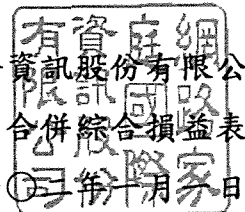 資訊股份有限公
合併綜合損益表
○二年一月一日
網路家
庭國際
資訊股份
有限公司